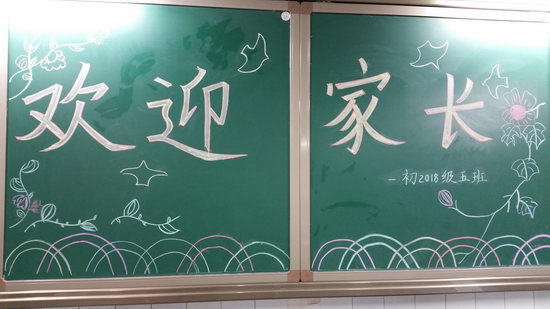 欢迎家长
-初2018级五班